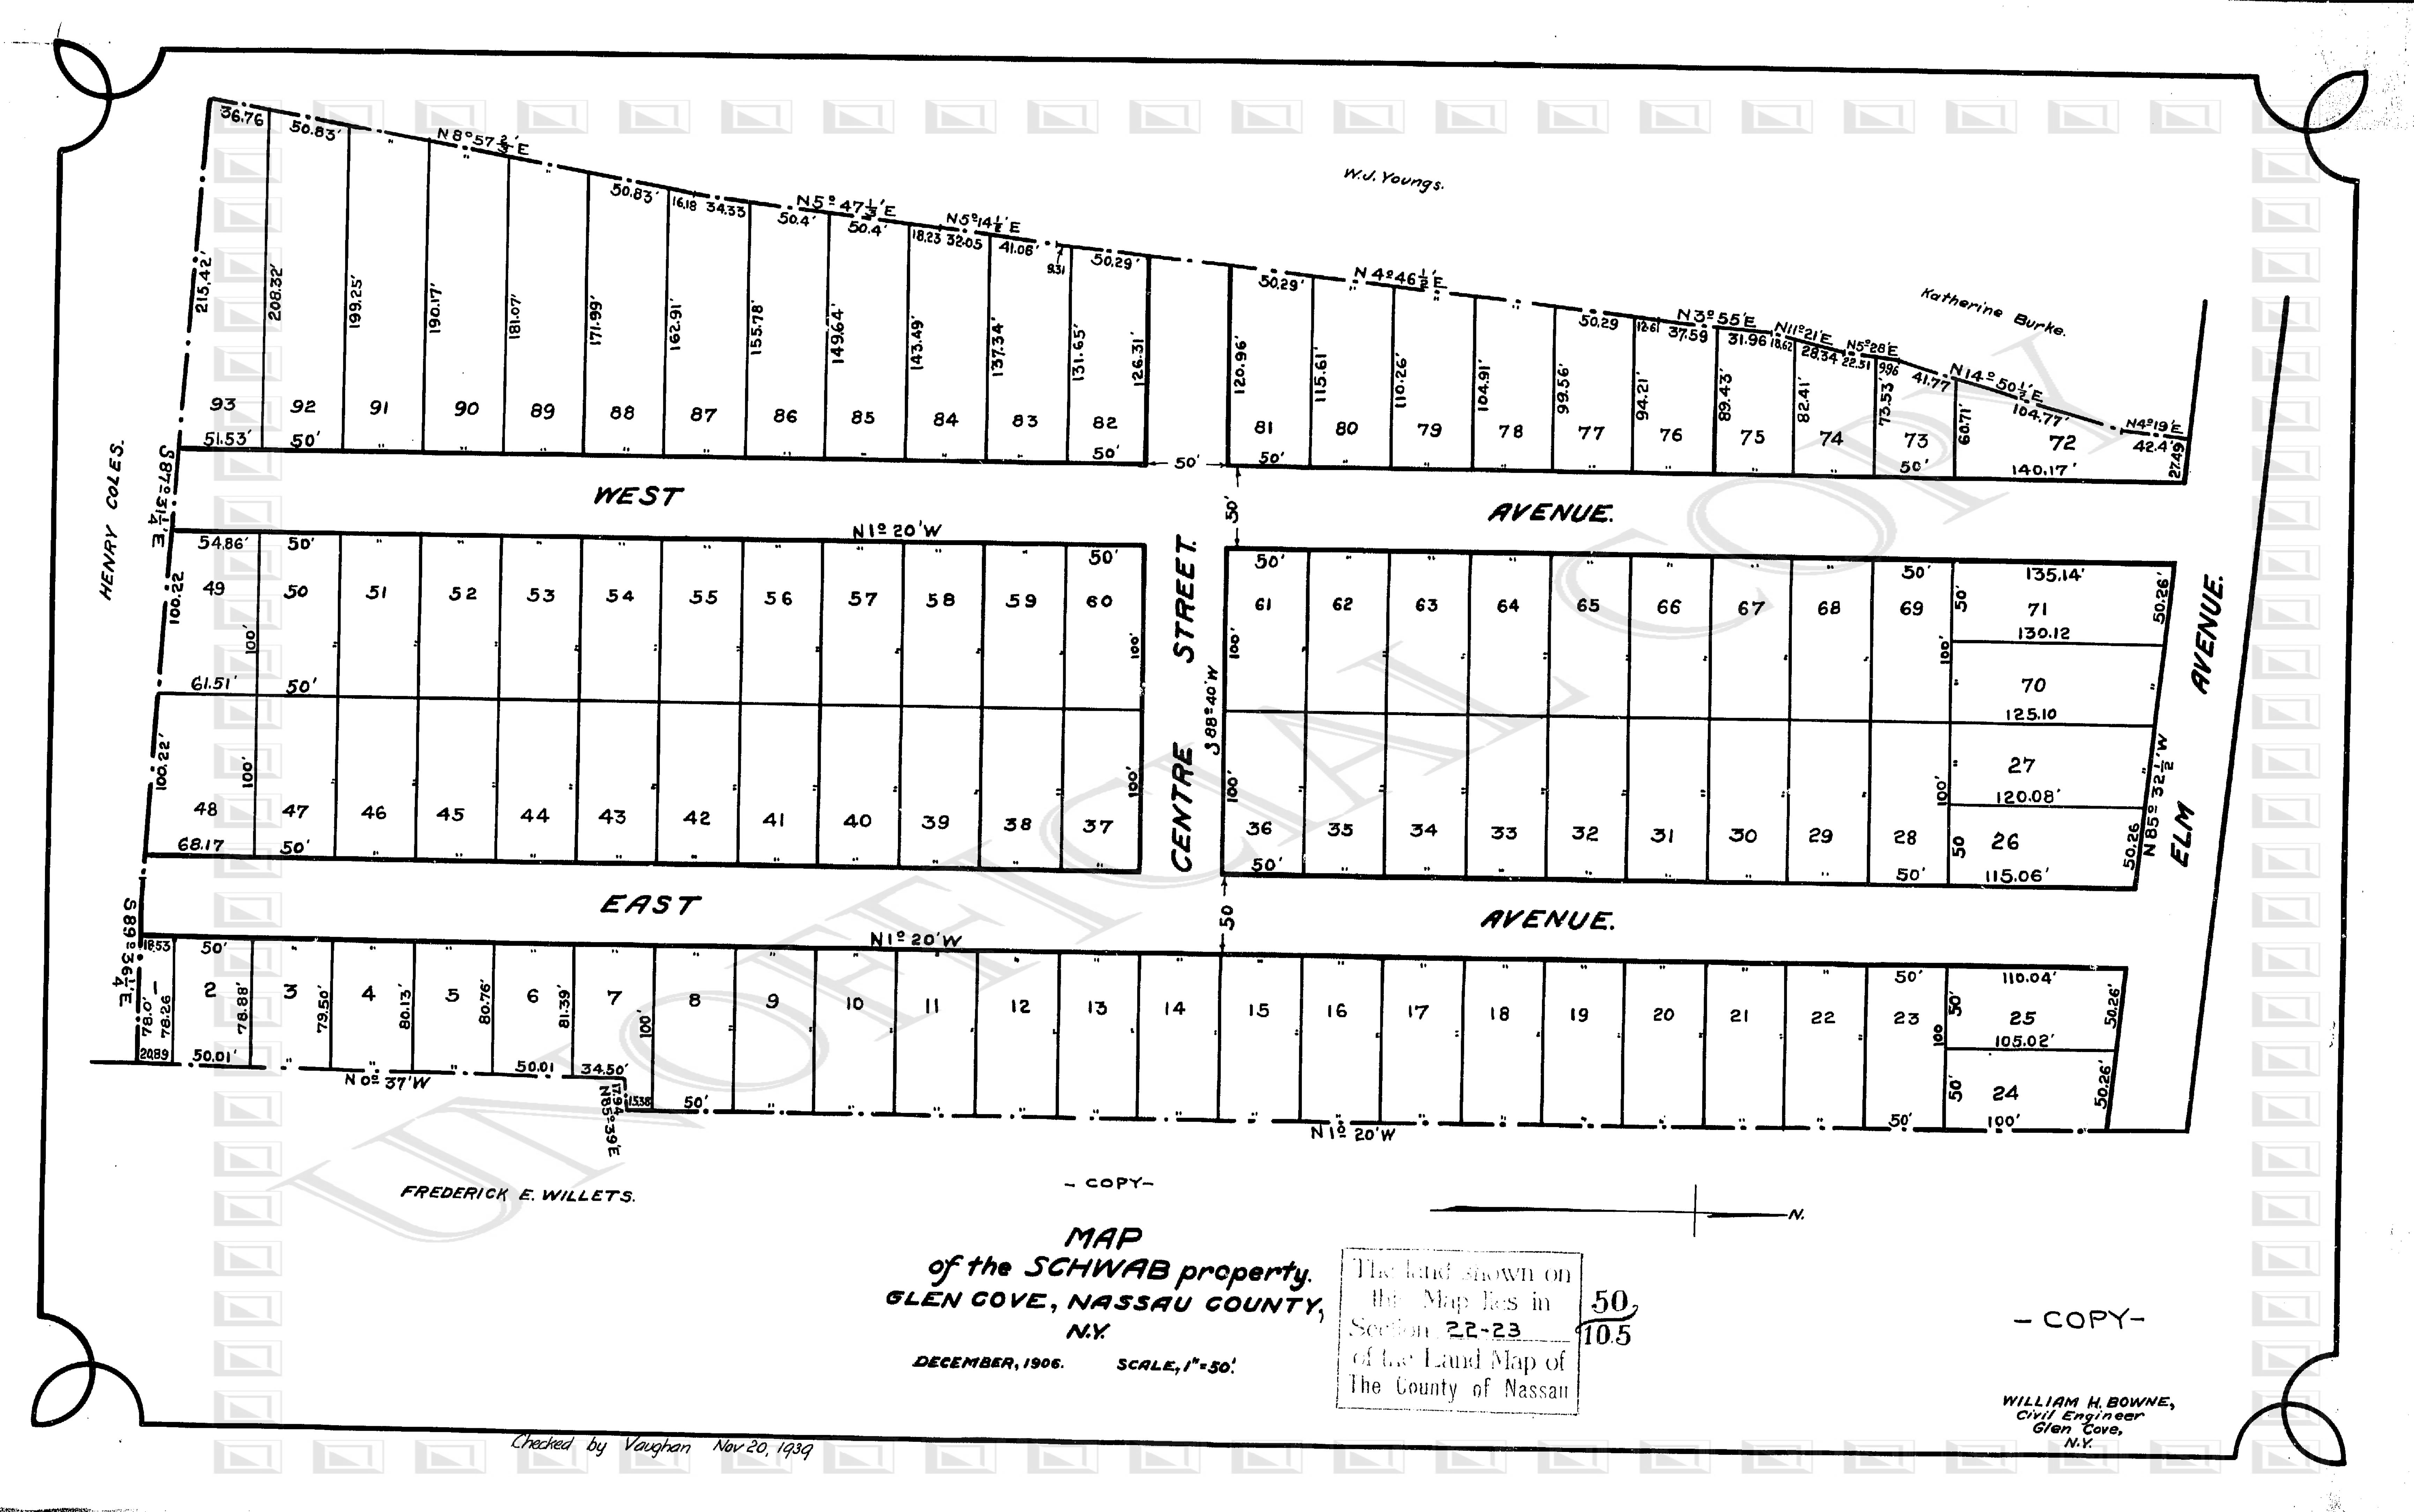 36.76 50.83' " N 8° 57 2/3' E " " 50.83' 16.18 34.33 N 5° 47 1/3' E 50.4' 50.4' N 5° 14 1/2' E 18.23 32.05 41.06' 9.31 50.29'
W.J. Youngs.
50.29' " N 4° 46 1/2' E " " 50.29 12.61 N 3° 55' E 37.59 31.96 N 11° 21' E 18.62 28.34 N 5° 28' E 22.51 9.96 41.77 N 14° 50 1/2' E 104.77' N 4° 19' E 42.4' 27.49
Katherine Burke.
215.42' 208.32' 199.25' 190.17' 181.07' 171.99' 162.91' 155.78' 149.64' 143.49' 137.34' 131.65' 126.31' 120.96' 115.61' 110.26' 104.91' 99.56' 94.21' 89.43' 82.41' 73.53' 60.71'
93 92 91 90 89 88 87 86 85 84 83 82 81 80 79 78 77 76 75 74 73 72
51.53' 50' " " " " " " " " " 50' 50' 50' " " " " " " 50' 140.17'
HENRY COLES.
S 87° 31 1/4' E
WEST AVENUE.
50'
N 1° 20' W
54.86' 50' " " " " " " " " " 50' 50' " " " " " " " 50' 135.14'
49 50 51 52 53 54 55 56 57 58 59 60 61 62 63 64 65 66 67 68 69 71
50' 50.26'
130.12
100.22 100' " " " " " " " " " 100' 100' " " " " " " " 100'
70
" "
61.51' 50' 125.10
CENTRE STREET.
S 88° 40' W
ELM AVENUE.
N 85° 32 1/2' W
27
" "
120.08'
100.22' 100' " " " " " " " " " 100' 100' " " " " " " " 100'
48 47 46 45 44 43 42 41 40 39 38 37 36 35 34 33 32 31 30 29 28 26
50 50.26
68.17 50' " " " " " " " " " " 50' " " " " " " " 50' 115.06'
EAST AVENUE.
50
S 89° 36 1/4' E
N 1° 20' W
18.53 50' " " " " " " " " " " " " " " " " " " " " 50' 110.04'
1 2 3 4 5 6 7 8 9 10 11 12 13 14 15 16 17 18 19 20 21 22 23 25
78.0' 78.26 78.88' 79.50' 80.13' 80.76' 81.39' 100' " " " " " " " " " " " " " " " 100 50' 50.26'
105.02'
24
50' 50.26'
20.89 50.01' " " " 50.01 34.50'
N 0° 37' W
17.94
N 85° 39' E
15.38 50' " " " " " " " " " " " " " " 50' 100'
N 1° 20' W
FREDERICK E. WILLETS.
- COPY -
N.
MAP
of the SCHWAB property.
GLEN COVE, NASSAU COUNTY,
N.Y.
DECEMBER, 1906. SCALE, 1" = 50'.
The land shown on
this Map lies in
Section 22-23
of the Land Map of
The County of Nassau
50
105
- COPY -
WILLIAM H. BOWNE,
Civil Engineer
Glen Cove,
N.Y.
Checked by Vaughan Nov 20, 1939
UNOFFICIAL COPY